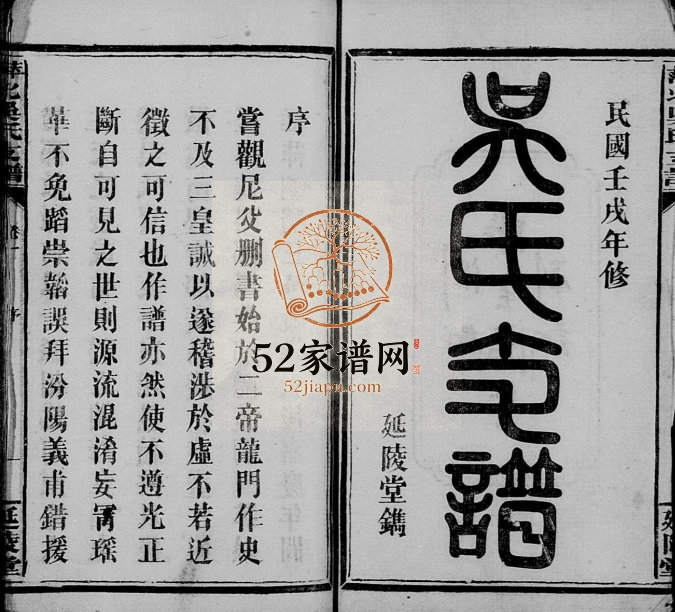 民國壬戌年修
吳氏支譜
延陵堂鐫
序
嘗觀尼父刪書始於二帝龍門作史
不及三皇誠以遂稽涉於虛不若近
徵之可信也作譜亦然使不遵光正
斷自可見之世則源流混淆妄冐瑶
華不免蹈崇韜誤拜汾陽義甫錯援
吳氏支譜
卷一
序
延陵堂
52家谱网
52jiapu.com